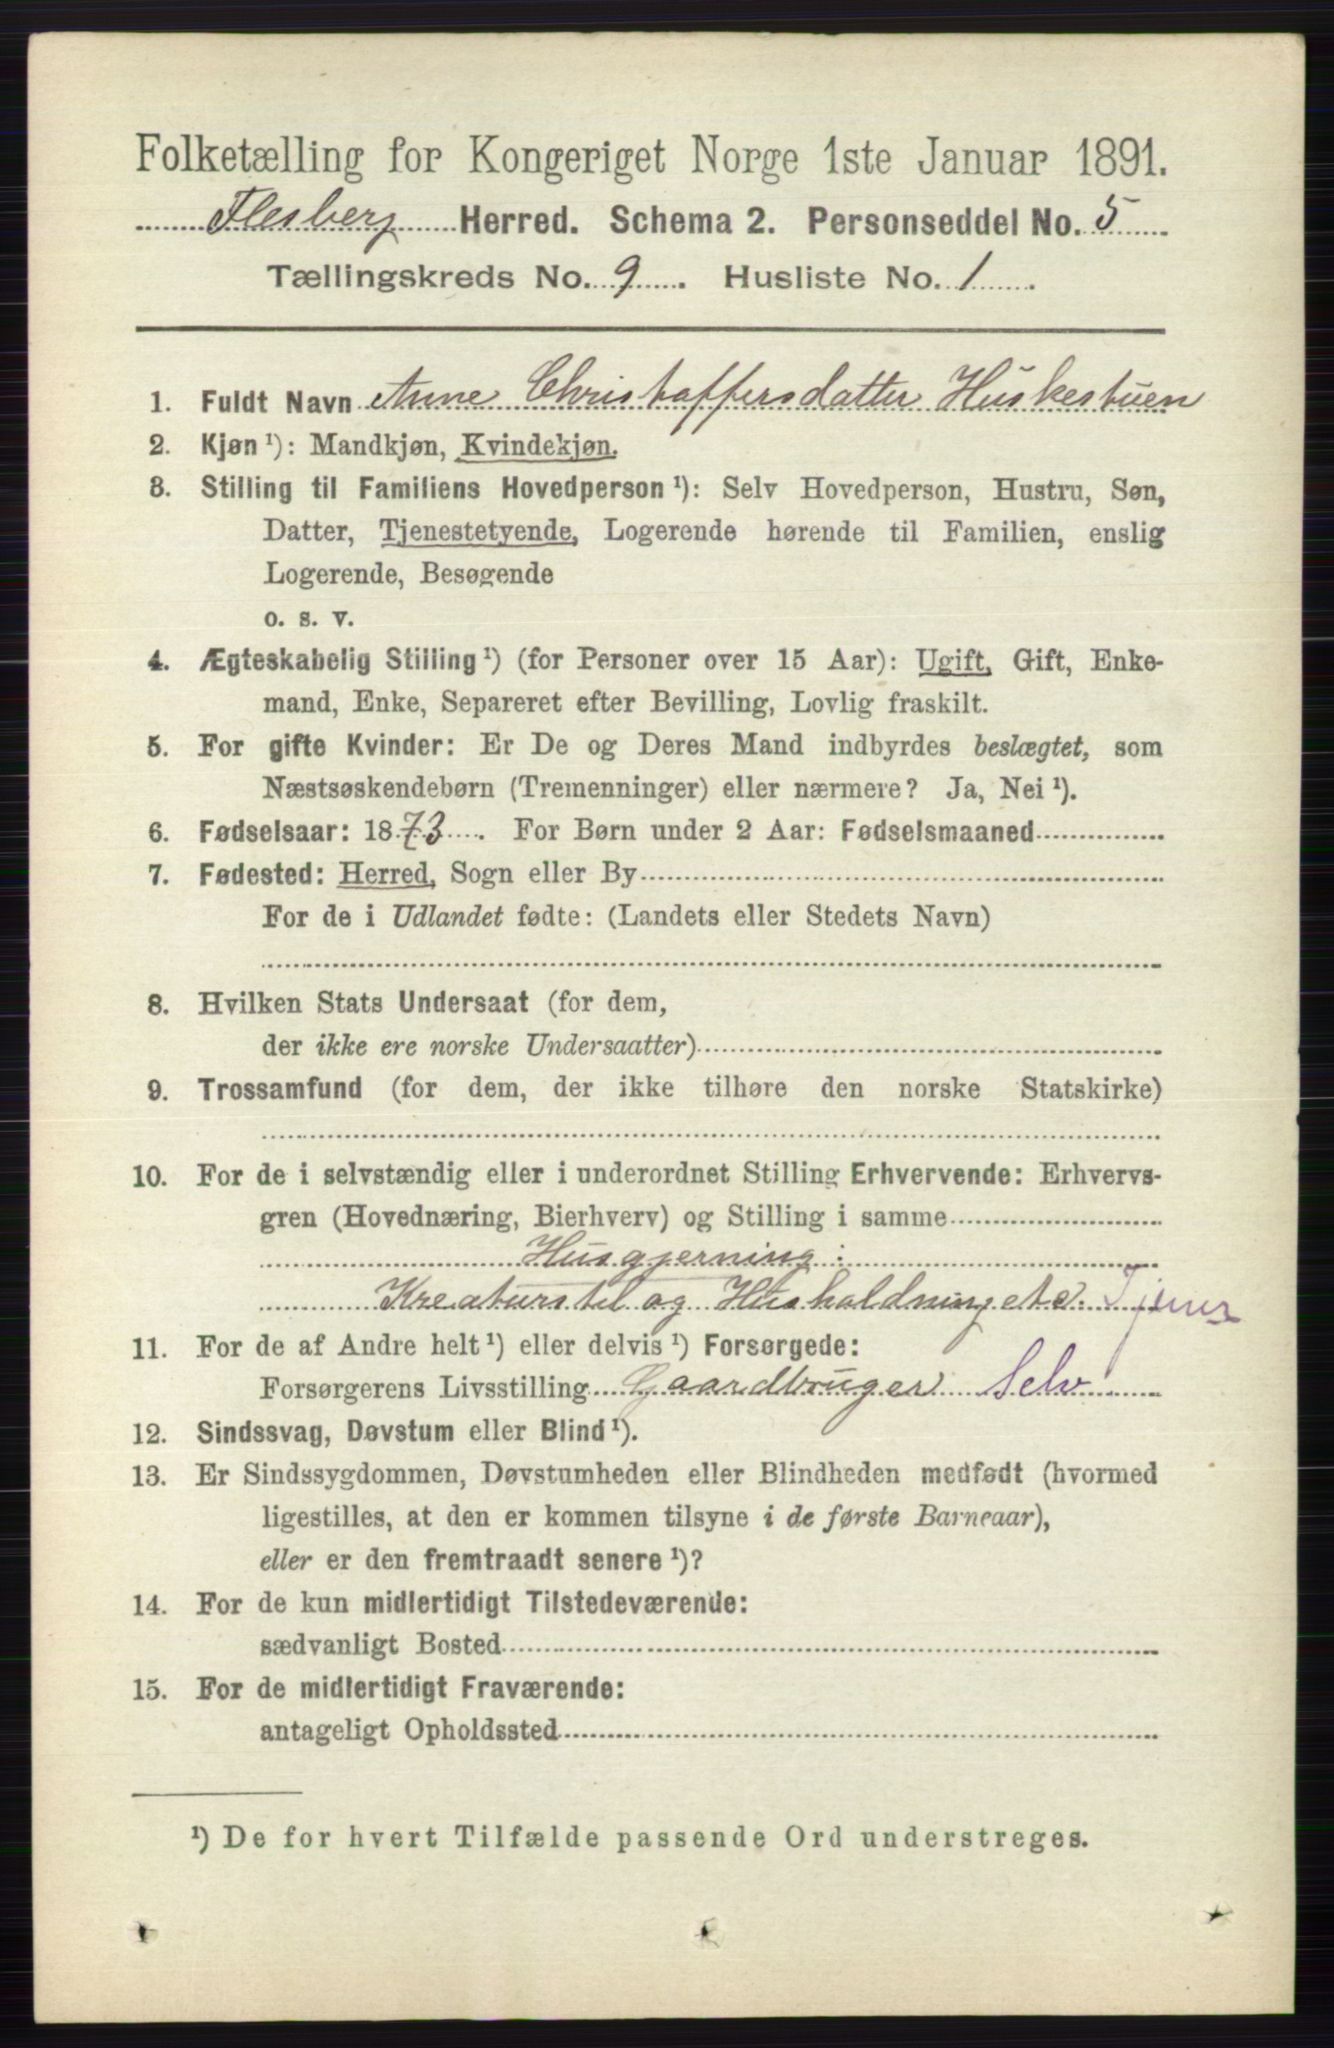 Folketælling for Kongeriget Norge 1ste Januar 1891.
Flesberg Herred. Schema 2. Personseddel No. 5
Tællingskreds No. 9. Husliste No. 1
1. Fuldt Navn Anne Christoffersdatter Huskestuen
2. Kjøn ¹): Mandkjøn, Kvindekjøn.
3. Stilling til Familiens Hovedperson ¹): Selv Hovedperson, Hustru, Søn,
Datter, Tjenestetyende, Logerende hørende til Familien, enslig
Logerende, Besøgende
o. s. v.
4. Ægteskabelig Stilling ¹) (for Personer over 15 Aar): Ugift, Gift, Enke-
mand, Enke, Separeret efter Bevilling, Lovlig fraskilt.
5. For gifte Kvinder: Er De og Deres Mand indbyrdes beslægtet, som
Næstsøskendebørn (Tremenninger) eller nærmere? Ja, Nei ¹).
6. Fødselsaar: 1873. For Børn under 2 Aar: Fødselsmaaned
7. Fødested: Herred, Sogn eller By
For de i Udlandet fødte: (Landets eller Stedets Navn)
8. Hvilken Stats Undersaat (for dem,
der ikke ere norske Undersaatter)
9. Trossamfund (for dem, der ikke tilhøre den norske Statskirke)
10. For de i selvstændig eller i underordnet Stilling Erhvervende: Erhvervs-
gren (Hovednæring, Bierhverv) og Stilling i samme
Husgjerning:
Kreaturstel og Husholdning etc.
11. For de af Andre helt ¹) eller delvis ¹) Forsørgede:
Forsørgerens Livsstilling Gaardbruger Selv
12. Sindssvag, Døvstum eller Blind ¹).
13. Er Sindssygdommen, Døvstumheden eller Blindheden medfødt (hvormed
ligestilles, at den er kommen tilsyne i de første Barneaar),
eller er den fremtraadt senere ¹)?
14. For de kun midlertidigt Tilstedeværende:
sædvanligt Bosted
15. For de midlertidigt Fraværende:
antageligt Opholdssted
¹) De for hvert Tilfælde passende Ord understreges.